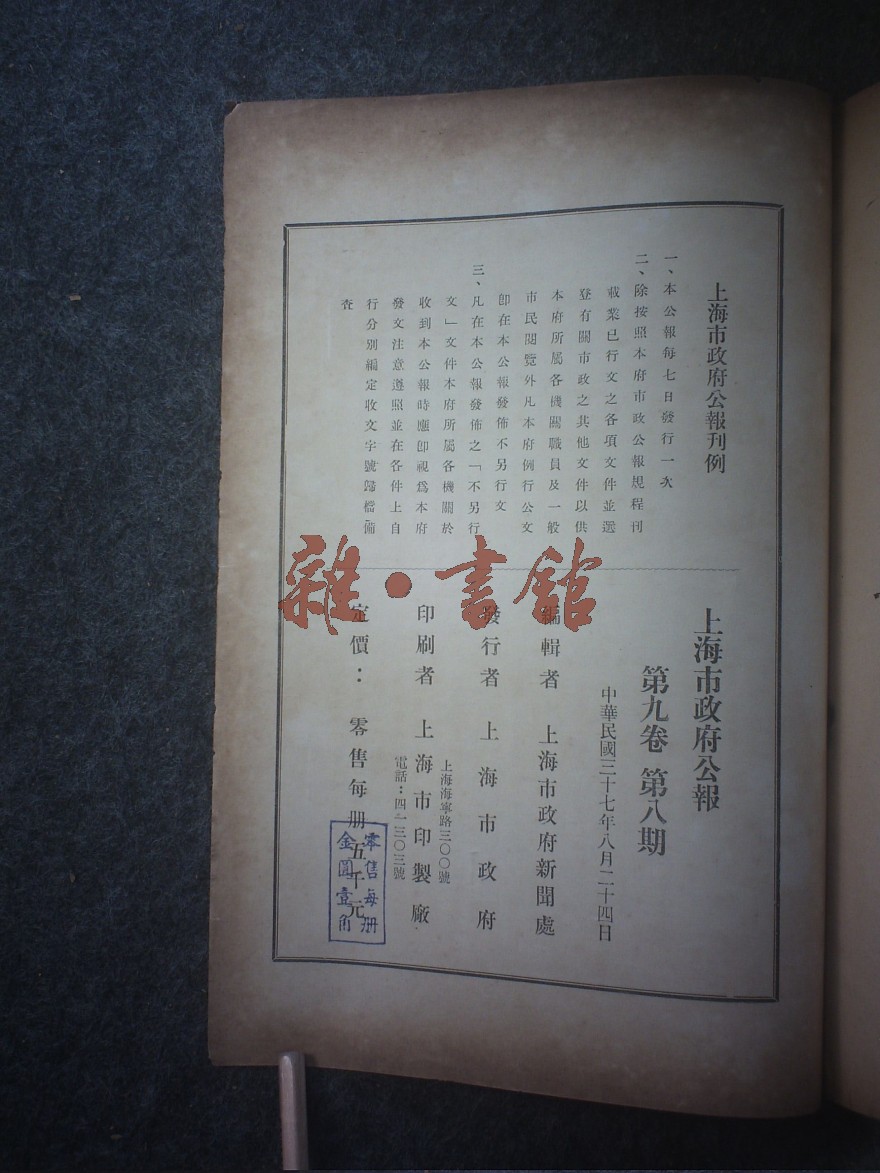 上海市政府公報刊例
一、本公報每七日發行一次
二、除按照本府市政公報規程刊
載業已行文之各項文件並選
登有關市政之其他文件以供
本府所屬各機關職員及一般
市民閱覽外凡本府例行公文
卽在本公報發佈不另行文
三、凡在本公報發佈之「不另行
文」文件本府所屬各機關於
收到本公報時應卽視爲本府
發文注意遵照並在各件上自
行分別編定收文字號歸檔備
查
上海市政府公報
第九卷 第八期
中華民國三十七年八月二十四日
編輯者 上海市政府新聞處
發行者 上海市政府
印刷者 上海市印製廠
上海海寧路三〇〇號
電話：四一三〇三號
定價： 零售每册五千元
零售每册
金圓壹角
雜·書館